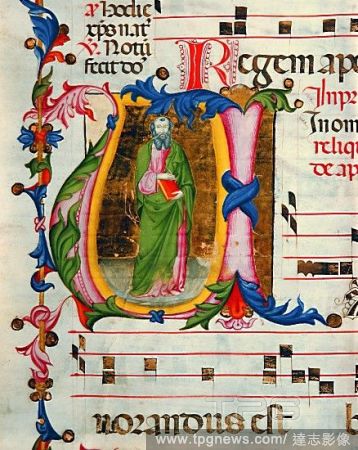 ℟ hodie
xp̄s nat
℣. Notū
fecit do
Regem apo
Inpr
In om
reliq
de ap
U
norandus est
www.tpgnews.com/ 達志影像